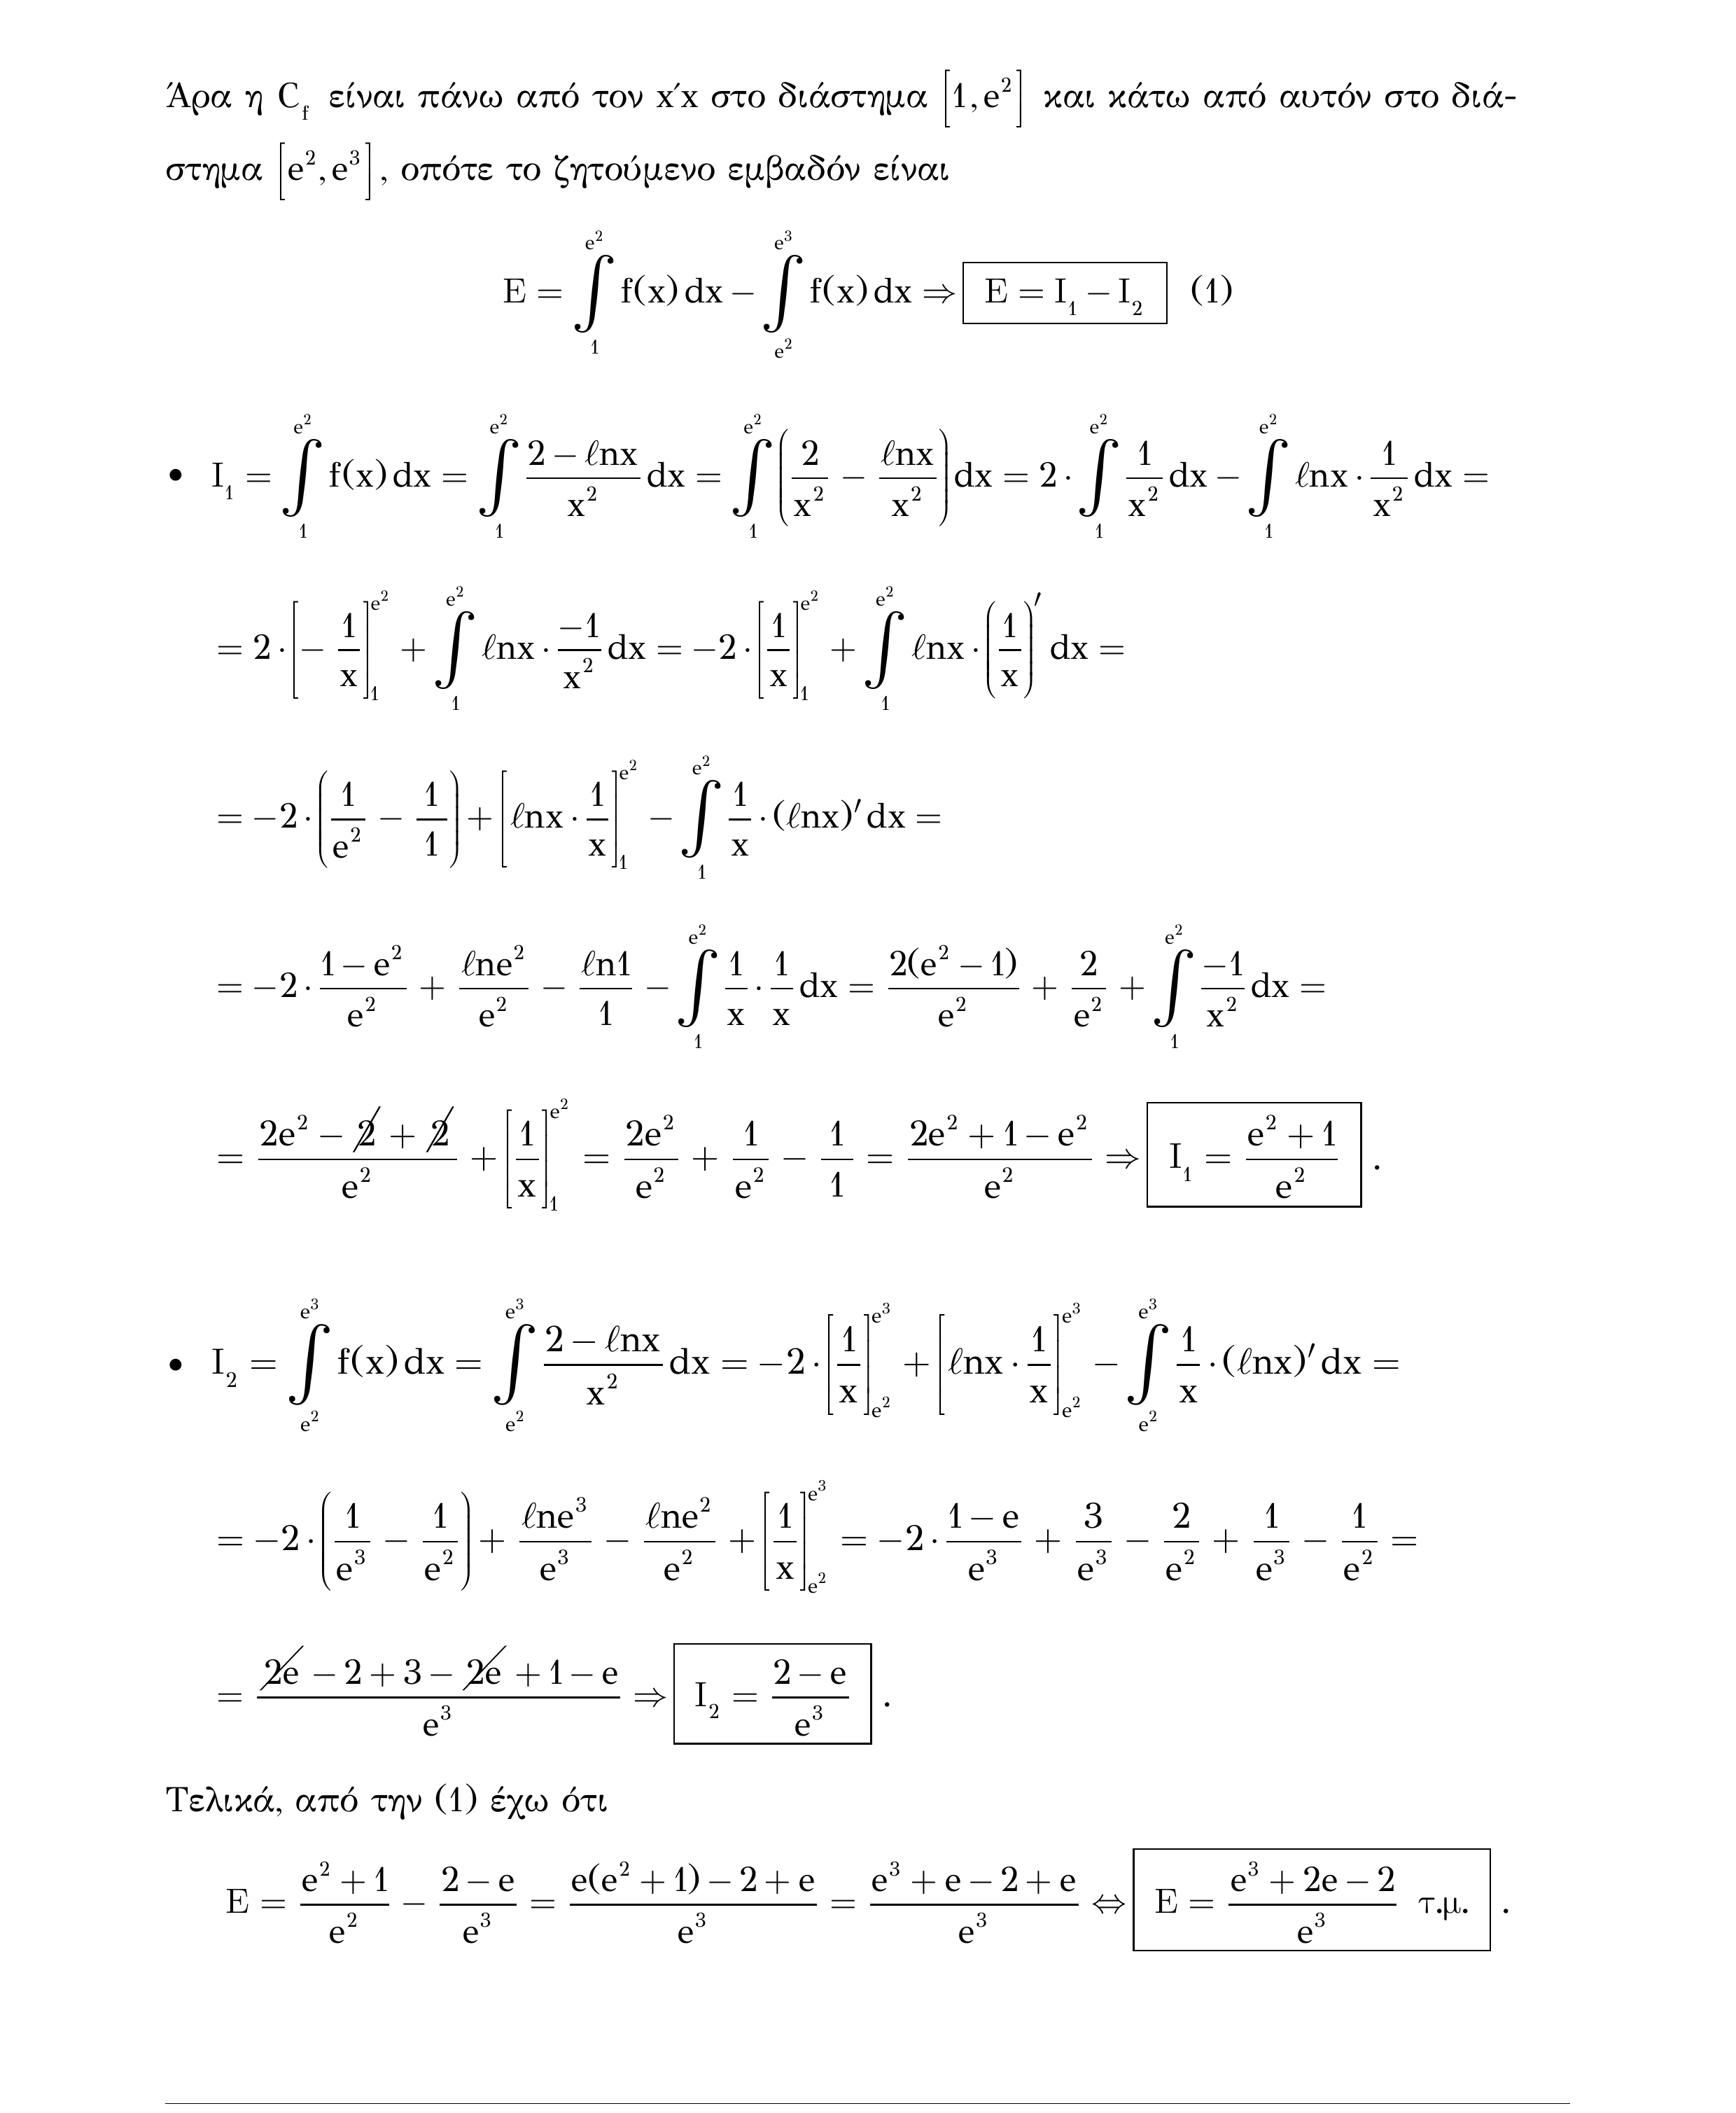 Άρα η C_f είναι πάνω από τον x΄x στο διάστημα [1, e²] και κάτω από αυτόν στο διά-
στημα [e², e³], οπότε το ζητούμενο εμβαδόν είναι
E = ∫₁^{e²} f(x) dx − ∫_{e²}^{e³} f(x) dx ⇒ E = I₁ − I₂ (1)
• I₁ = ∫₁^{e²} f(x) dx = ∫₁^{e²} \frac{2 − ℓnx}{x²} dx = ∫₁^{e²} (\frac{2}{x²} − \frac{ℓnx}{x²}) dx = 2 · ∫₁^{e²} \frac{1}{x²} dx − ∫₁^{e²} ℓnx · \frac{1}{x²} dx =
= 2 · [− \frac{1}{x}]₁^{e²} + ∫₁^{e²} ℓnx · \frac{−1}{x²} dx = −2 · [\frac{1}{x}]₁^{e²} + ∫₁^{e²} ℓnx · (\frac{1}{x})′ dx =
= −2 · (\frac{1}{e²} − \frac{1}{1}) + [ℓnx · \frac{1}{x}]₁^{e²} − ∫₁^{e²} \frac{1}{x} · (ℓnx)′ dx =
= −2 · \frac{1 − e²}{e²} + \frac{ℓne²}{e²} − \frac{ℓn1}{1} − ∫₁^{e²} \frac{1}{x} · \frac{1}{x} dx = \frac{2(e² − 1)}{e²} + \frac{2}{e²} + ∫₁^{e²} \frac{−1}{x²} dx =
= \frac{2e² − 2 + 2}{e²} + [\frac{1}{x}]₁^{e²} = \frac{2e²}{e²} + \frac{1}{e²} − \frac{1}{1} = \frac{2e² + 1 − e²}{e²} ⇒ I₁ = \frac{e² + 1}{e²} .
• I₂ = ∫_{e²}^{e³} f(x) dx = ∫_{e²}^{e³} \frac{2 − ℓnx}{x²} dx = −2 · [\frac{1}{x}]_{e²}^{e³} + [ℓnx · \frac{1}{x}]_{e²}^{e³} − ∫_{e²}^{e³} \frac{1}{x} · (ℓnx)′ dx =
= −2 · (\frac{1}{e³} − \frac{1}{e²}) + \frac{ℓne³}{e³} − \frac{ℓne²}{e²} + [\frac{1}{x}]_{e²}^{e³} = −2 · \frac{1 − e}{e³} + \frac{3}{e³} − \frac{2}{e²} + \frac{1}{e³} − \frac{1}{e²} =
= \frac{2e − 2 + 3 − 2e + 1 − e}{e³} ⇒ I₂ = \frac{2 − e}{e³} .
Τελικά, από την (1) έχω ότι
E = \frac{e² + 1}{e²} − \frac{2 − e}{e³} = \frac{e(e² + 1) − 2 + e}{e³} = \frac{e³ + e − 2 + e}{e³} ⇔ E = \frac{e³ + 2e − 2}{e³} τ.μ. .